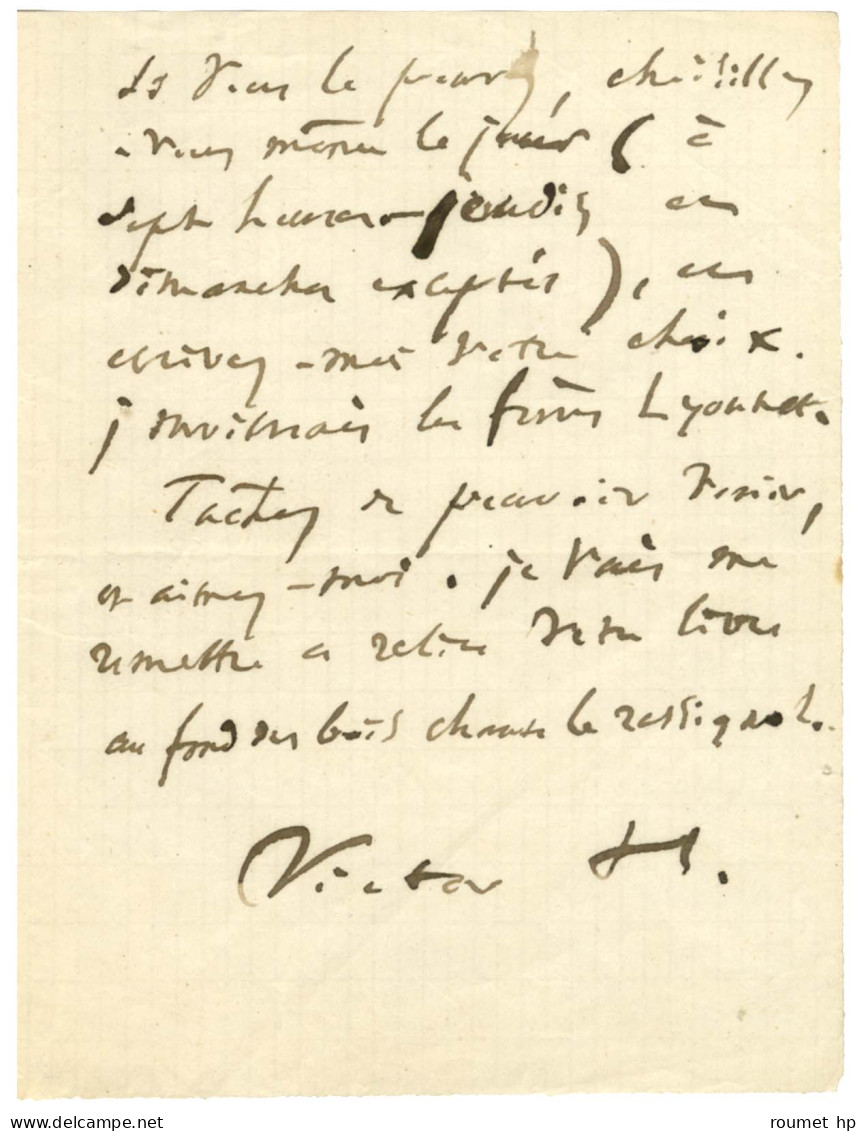 si vous le pouvez, choisissez
-vous même le jour (à
sept heures - jeudis ou
dimanches exceptés), ou
écrivez-moi votre choix.
j'inviterais les frères Lyonnet.
Tachez de pouvoir venir,
et aimez-moi. je vais me
remettre à relire votre livre
au fond des bois chante le rossignol.
Victor H.
roumet hp